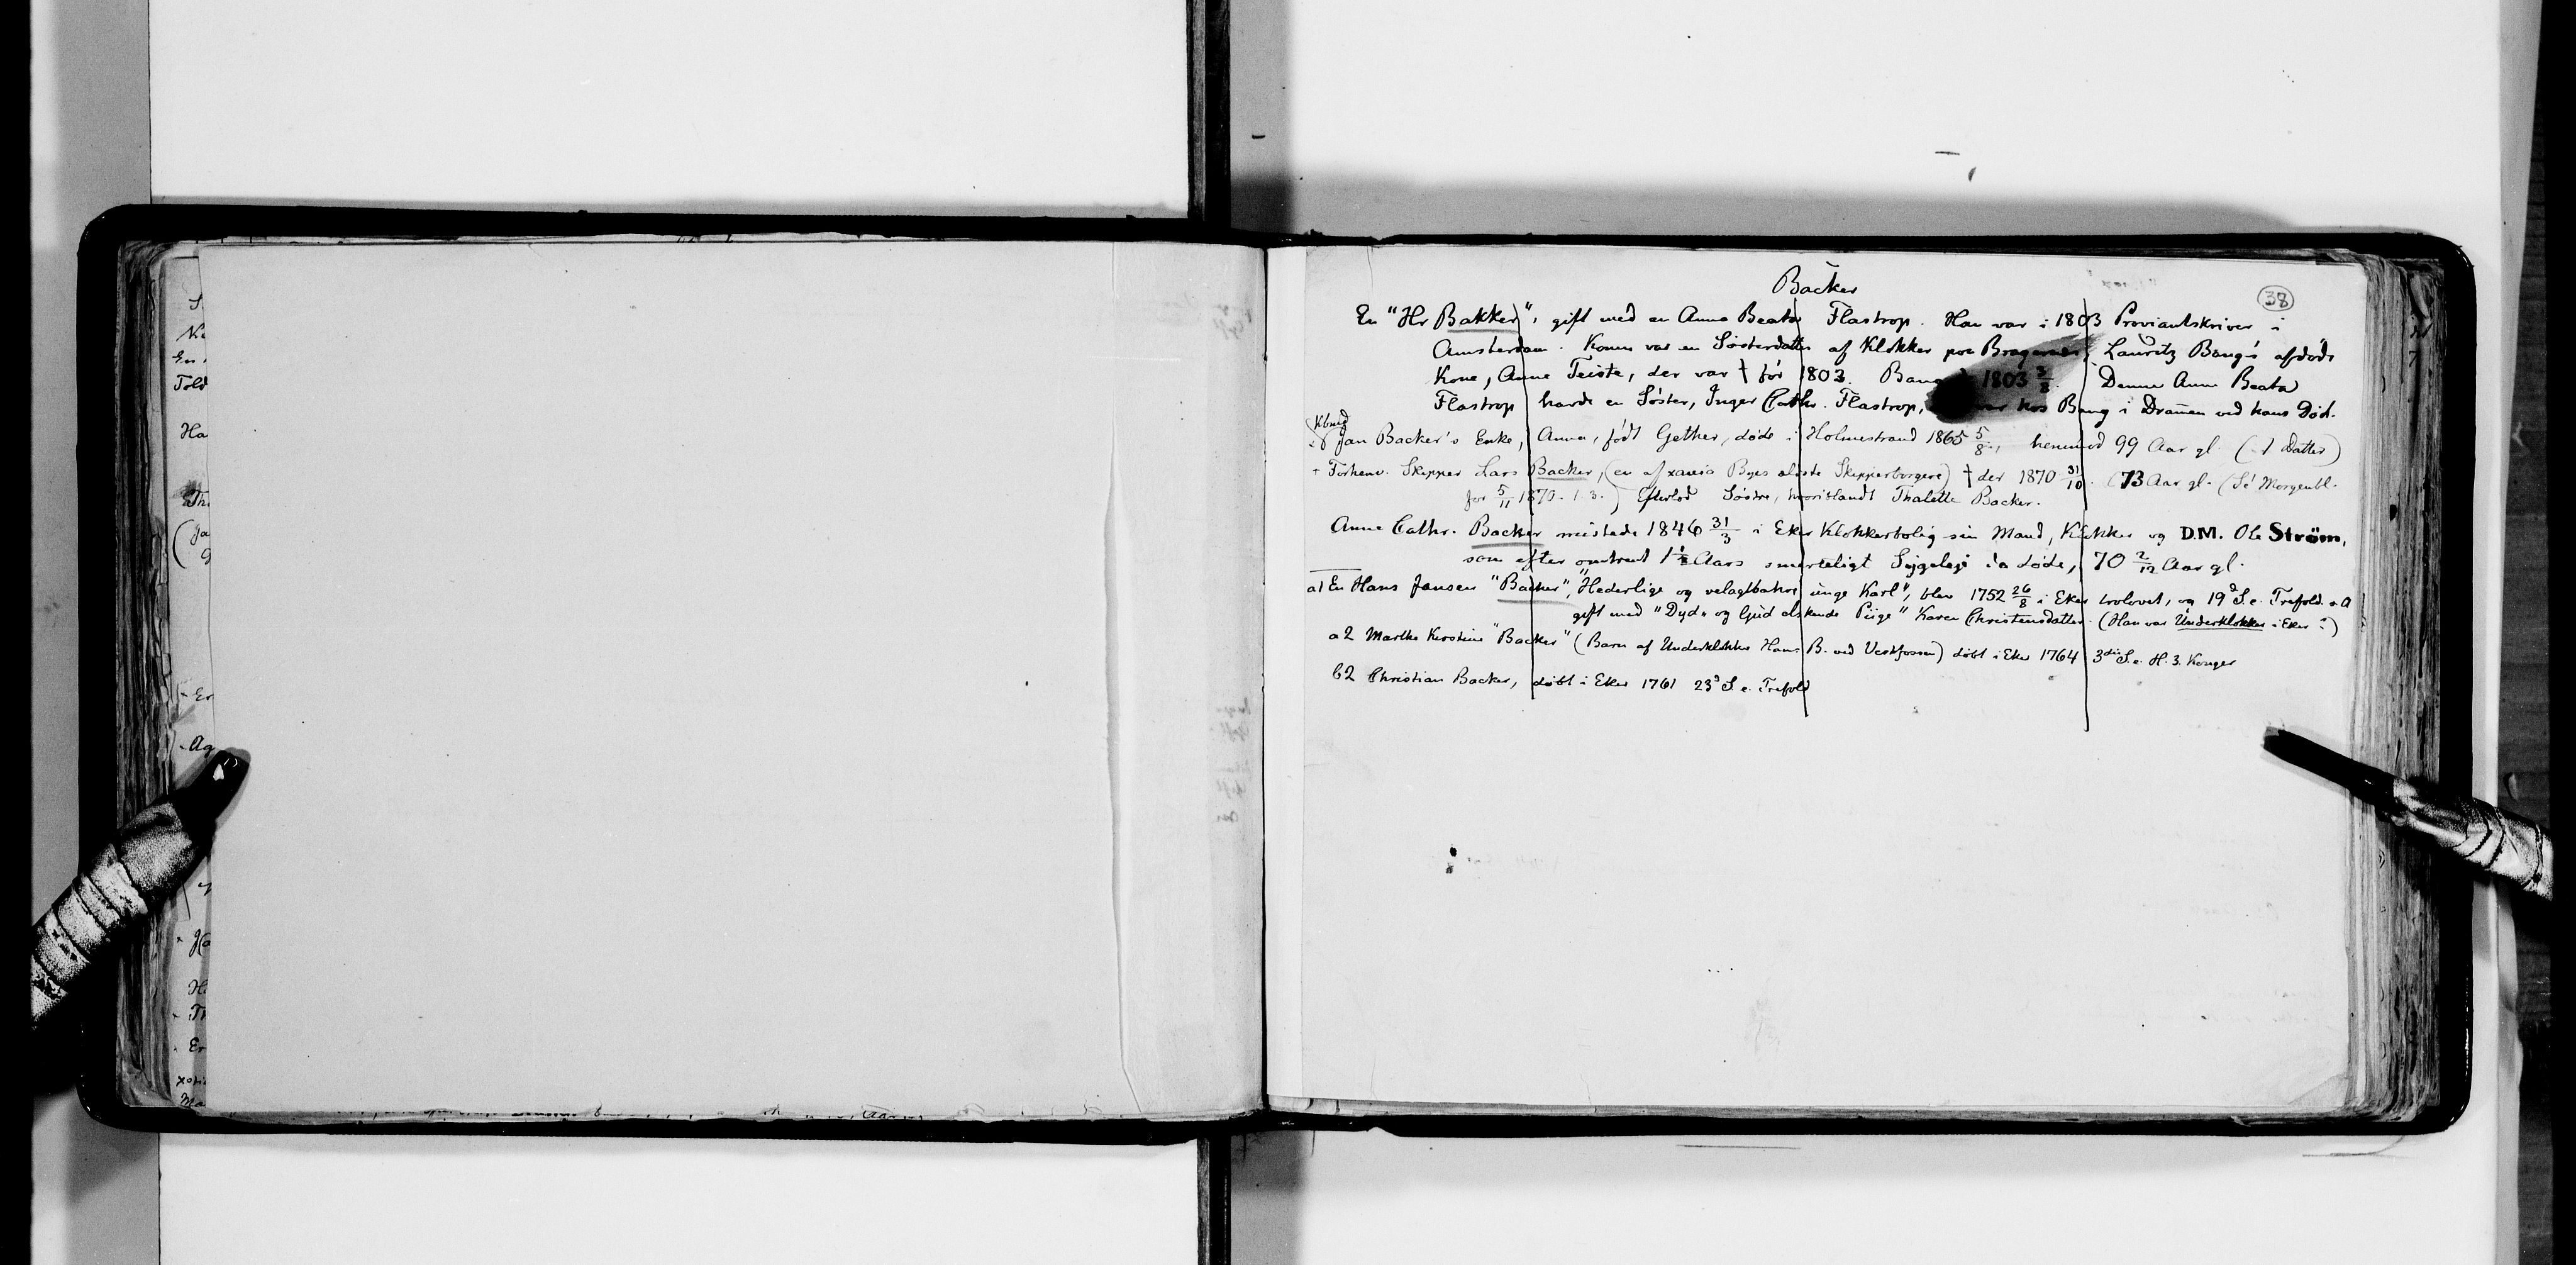 Backer
38
En "Hr Bakker", gift med en Anna Beata Flastrop. Han var i 1803 Proviantskriver i
Amsterdam. Konen var en Søsterdatter af Klokker paa Bragernes, Lauritz Bang's afdøde
Kone, Anne Teiste, der var † før 1803. Bang † 1803 3/8. Denne Anne Beata
Flastrop havde en Søster, Inger Cathr. Flastrop, var hos Bang i Dramen ved hans Død.
Kbmd
Jan Backer's Enke, Anna, født Gether, døde i Holmestrand 1865 5/8, henimod 99 Aar gl. (1 Datter)
+ Forhenv. Skipper Lars Backer, (en af xania Byes ældste Skipperborgere) † der 1870 31/10. (73 Aar gl. (Se Morgenbl.
for 5/11 1870. 1.3.) Efterlod Søstre, hvoriblandt Thalette Backer.
Anne Cathr. Backer mistede 1846 31/3 i Eker Klokkerbolig sin Mand, Klokker og D.M. Ole Ström,
som efter omtrent 1½ Aars smerteligt Sygeleje da døde, 70 2/12 Aar gl.
a1 En Hans Jensen "Backer", "Hæderlige og velagtbahre unge Karl", blev 1752 26/8 i Eker trolovet, og 19d S. e. Trefold. s. A
gift med "Dyd= og Gud elskende Piige" Karen Christensdatter. (Han var Underklokker i Eker?)
a2 Marthe Kirstine "Backer" (Barn af Underklokker Hans B. ved Vestfossen) døbt i Eker 1764 3die S. e. H. 3. Konger
b2 Christian Backer, døbt i Eker 1761 23d S. e. Trefold
Told
Ha
Th
Ja
Er
Ag
Ha
H
Th
Er
Ma